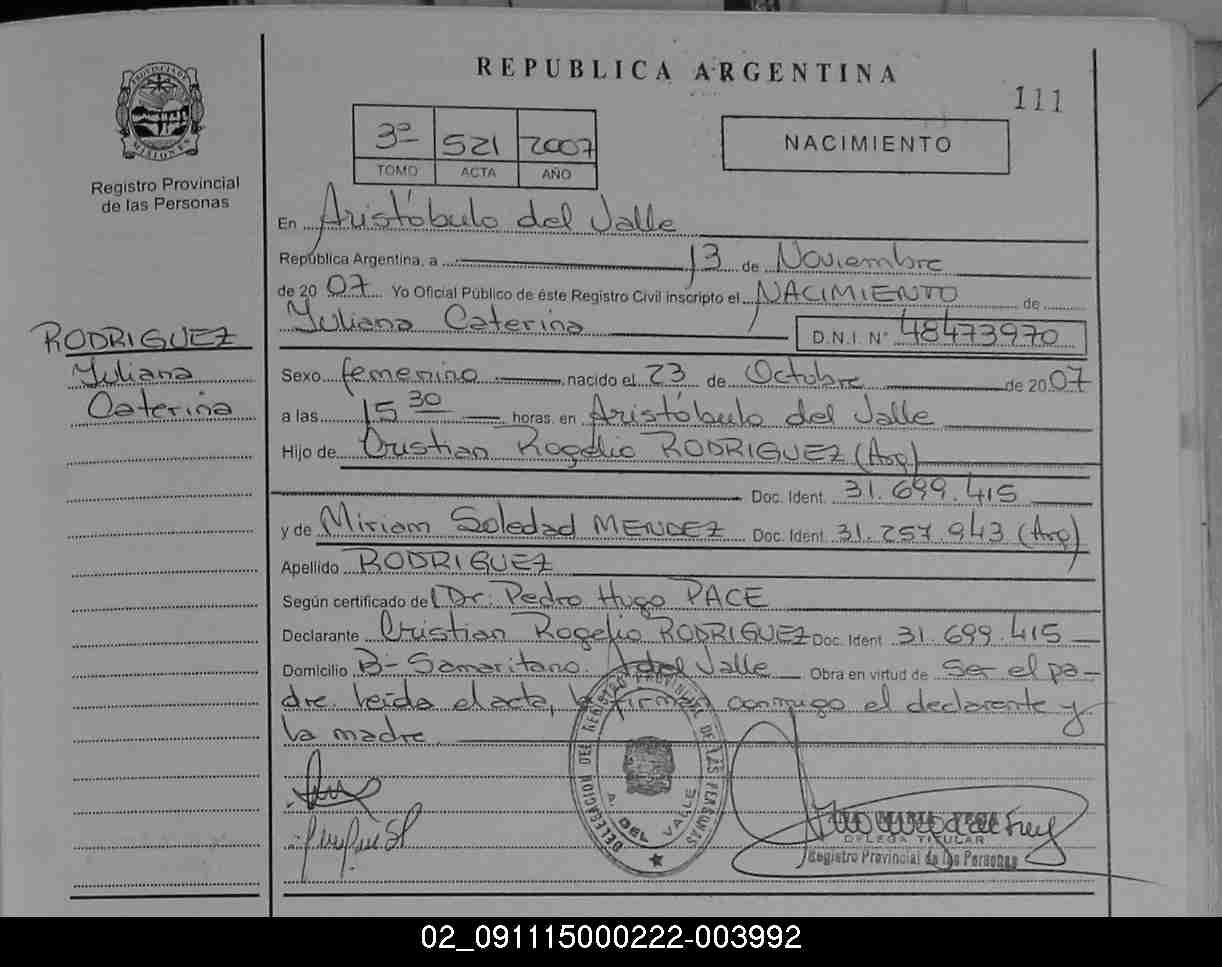 REPUBLICA ARGENTINA
111
PROVINCIA DE
MISIONES
Registro Provincial
de las Personas
3º 521 2007
TOMO ACTA AÑO
NACIMIENTO
En Aristóbulo del Valle
República Argentina, a 13 de Noviembre
de 20 07 Yo Oficial Público de éste Registro Civil inscripto el NACIMIENTO de
Yuliana Caterina D.N.I. Nº 48473970
RODRIGUEZ
Yuliana
Caterina
Sexo femenino, nacido el 23 de Octubre de 2007
a las 15 30 horas. en Aristóbulo del Valle
Hijo de Cristian Rogelio RODRIGUEZ (Arg)
Doc. Ident. 31.699.415
y de Miriam Soledad MENDEZ Doc. Ident. 31.257.943 (Arg)
Apellido RODRIGUEZ
Según certificado de Dr. Pedro Hugo PACE
Declarante Cristian Rogelio RODRIGUEZ Doc. Ident 31.699.415
Domicilio Bº Samaritano. A. del Valle Obra en virtud de Ser el pa-
dre. leída el acta, la firman conmigo el declarante y
la madre
DELEGACION DEL REGISTRO PROVINCIAL DE LAS PERSONAS
A. DEL VALLE
DELEGA TITULAR
Registro Provincial de las Personas
02_091115000222-003992